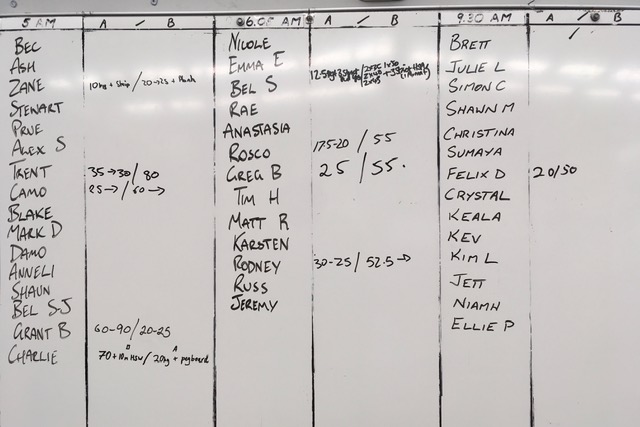 5 AM A / B 6.0 AM A / B 9.30 AM A / B
BEC
ASH
ZANE 10kg + Strip / 20→25 + Plank
STEWART
PRUE
ALEX S
TRENT 35→30 / 80
CAMO 25→ / 60→
BLAKE
MARK D
DAMO
ANNELI
SHAUN
BEL SJ
GRANT B 60-90/20-25
CHARLIE B 70+10m HSW / A 20kg + pegboard
NICOLE
EMMA E
BEL S 12.5kg
RAE
ANASTASIA
ROSCO 17.5-20 / 55
GREG B 25 / 55.
TIM H
MATT R
KARSTEN
RODNEY 30-25 / 52.5→
RUSS
JEREMY
BRETT
JULIE L
SIMON C
SHAWN M
CHRISTINA
SUMAYA
FELIX D 20/50
CRYSTAL
KEALA
KEV
KIM L
JETT
NIAMH
ELLIE P